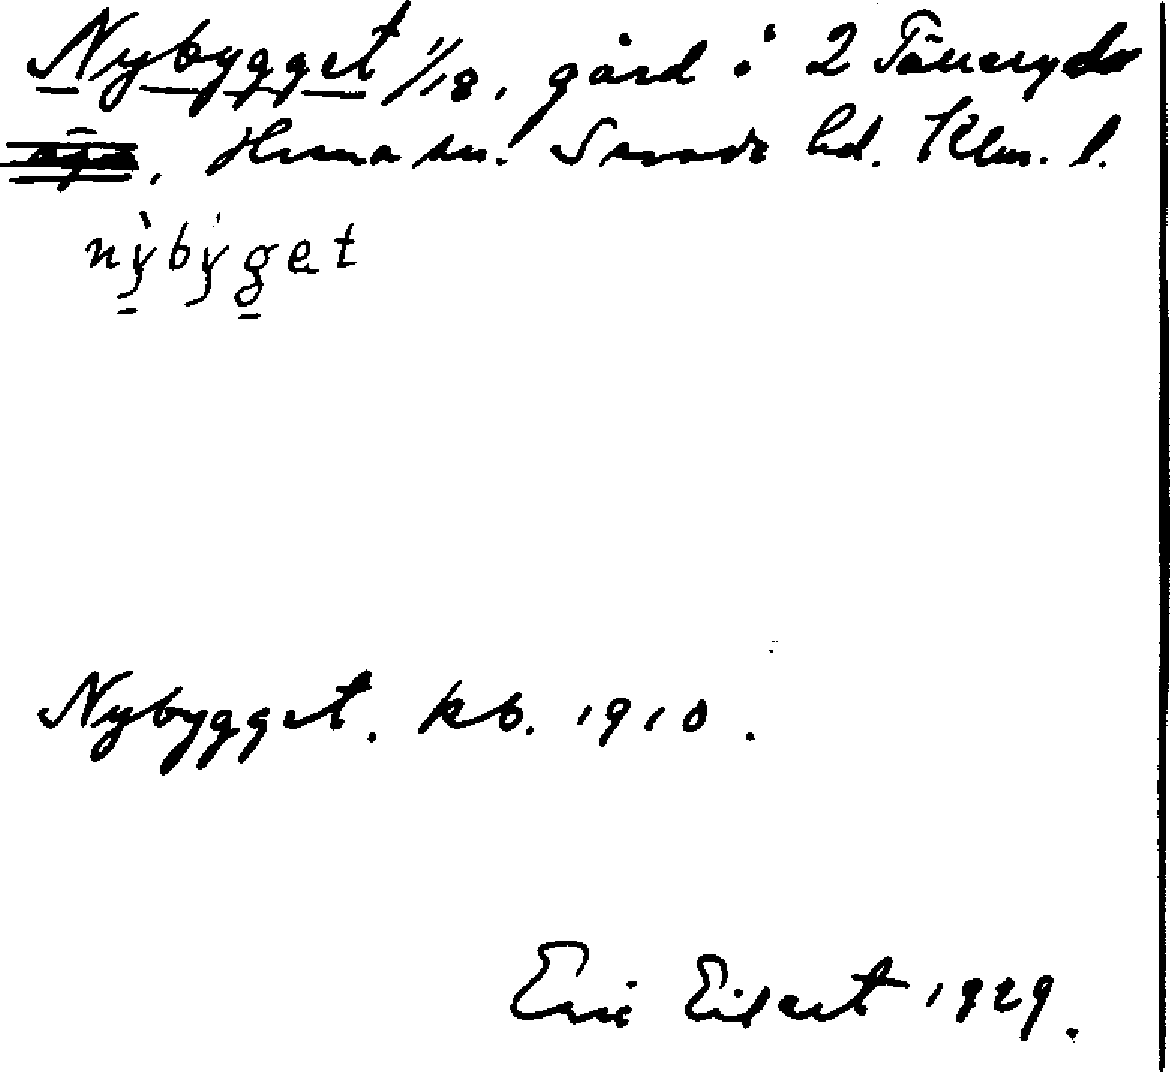 Nybygget 1/18, gård i 2 Tåueryds
, Huna sn. Sunds hd. Klm. l.
nỳbýget
Nybygget. kb. 1910.
Eric Eilert 1929.